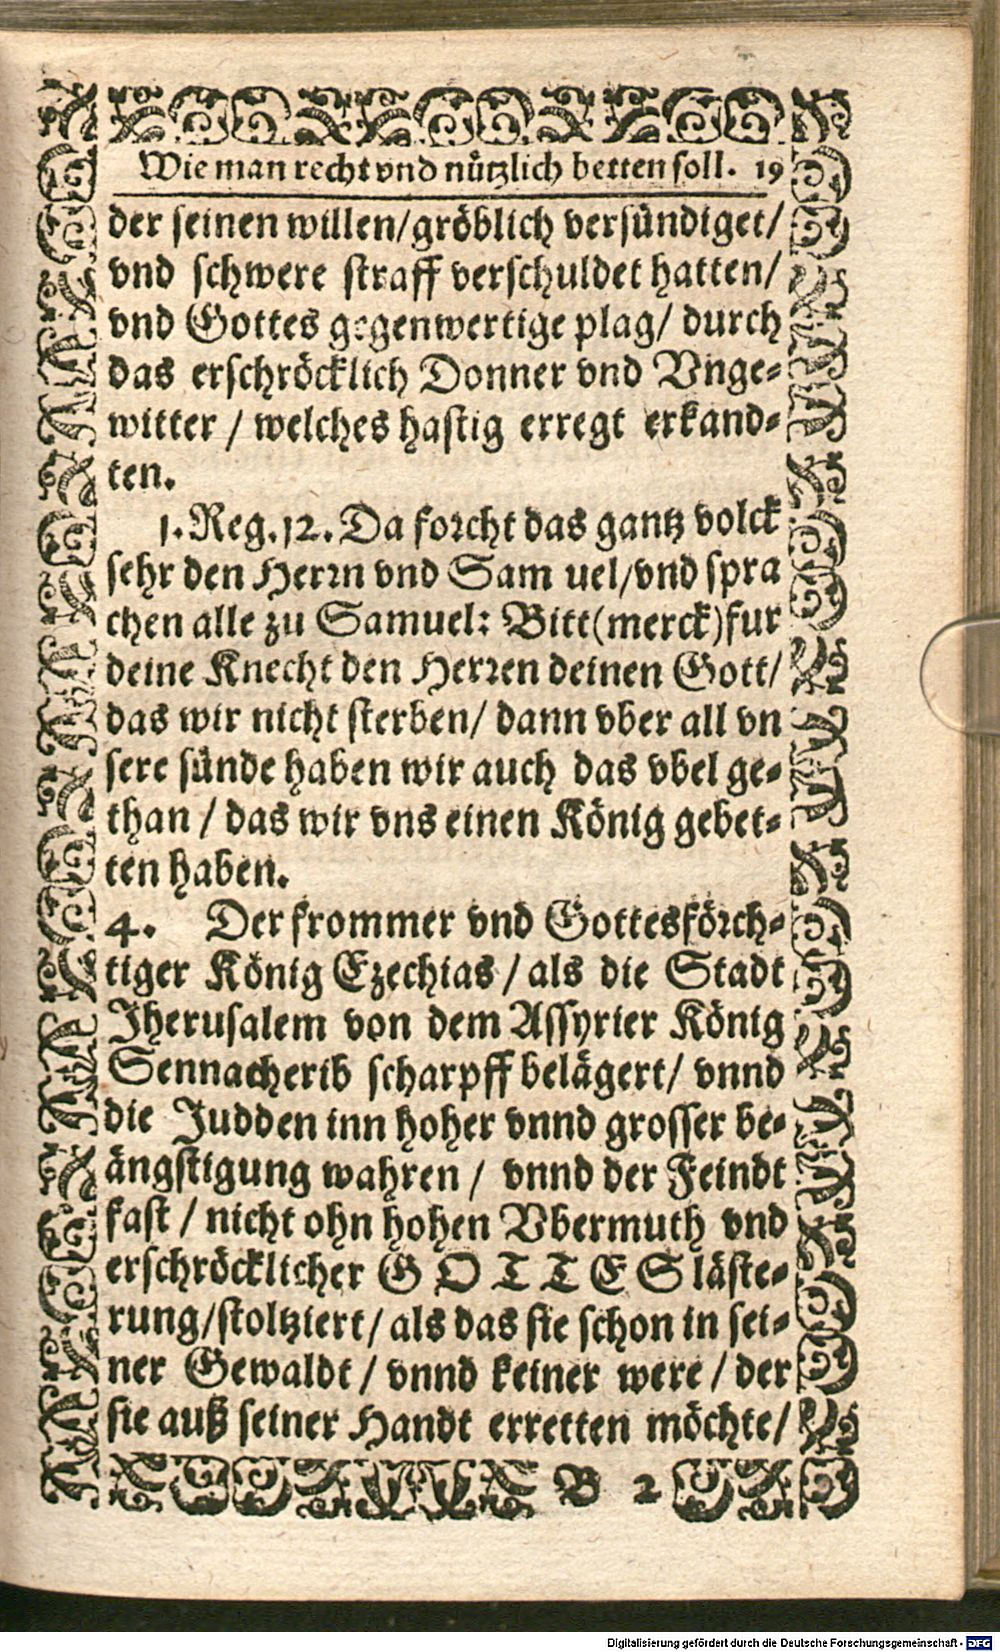 Wie man recht vnd nützlich betten soll. 19
der seinen willen/gröblich versündiget/
vnd schwere straff verschuldet hatten/
vnd Gottes gegenwertige plag/ durch
das erschröcklich Donner vnd Vnge-
witter / welches hastig erregt erkand-
ten.
1. Reg. 12. Da forcht das gantz volck
sehr den Herrn vnd Sam uel/vnd spra
chen alle zu Samuel: Bitt(merck)fur
deine Knecht den Herren deinen Gott/
das wir nicht sterben/ dann vber all vn
sere sünde haben wir auch das vbel ge-
than / das wir vns einen König gebet-
ten haben.
4. Der frommer vnd Gottesförch-
tiger König Ezechias / als die Stadt
Jherusalem von dem Assyrier König
Sennacherib scharpff belägert/ vnnd
die Judden inn hoher vnnd grosser be-
ängstigung wahren / vnnd der Feindt
fast / nicht ohn hohen Vbermuth vnd
erschröcklicher GOTTES läste-
rung/stoltziert/ als das sie schon in sei-
ner Gewaldt / vnnd keiner were / der
sie auß seiner Handt erretten möchte/
B 2
Digitalisierung gefördert durch die Deutsche Forschungsgemeinschaft - DFG